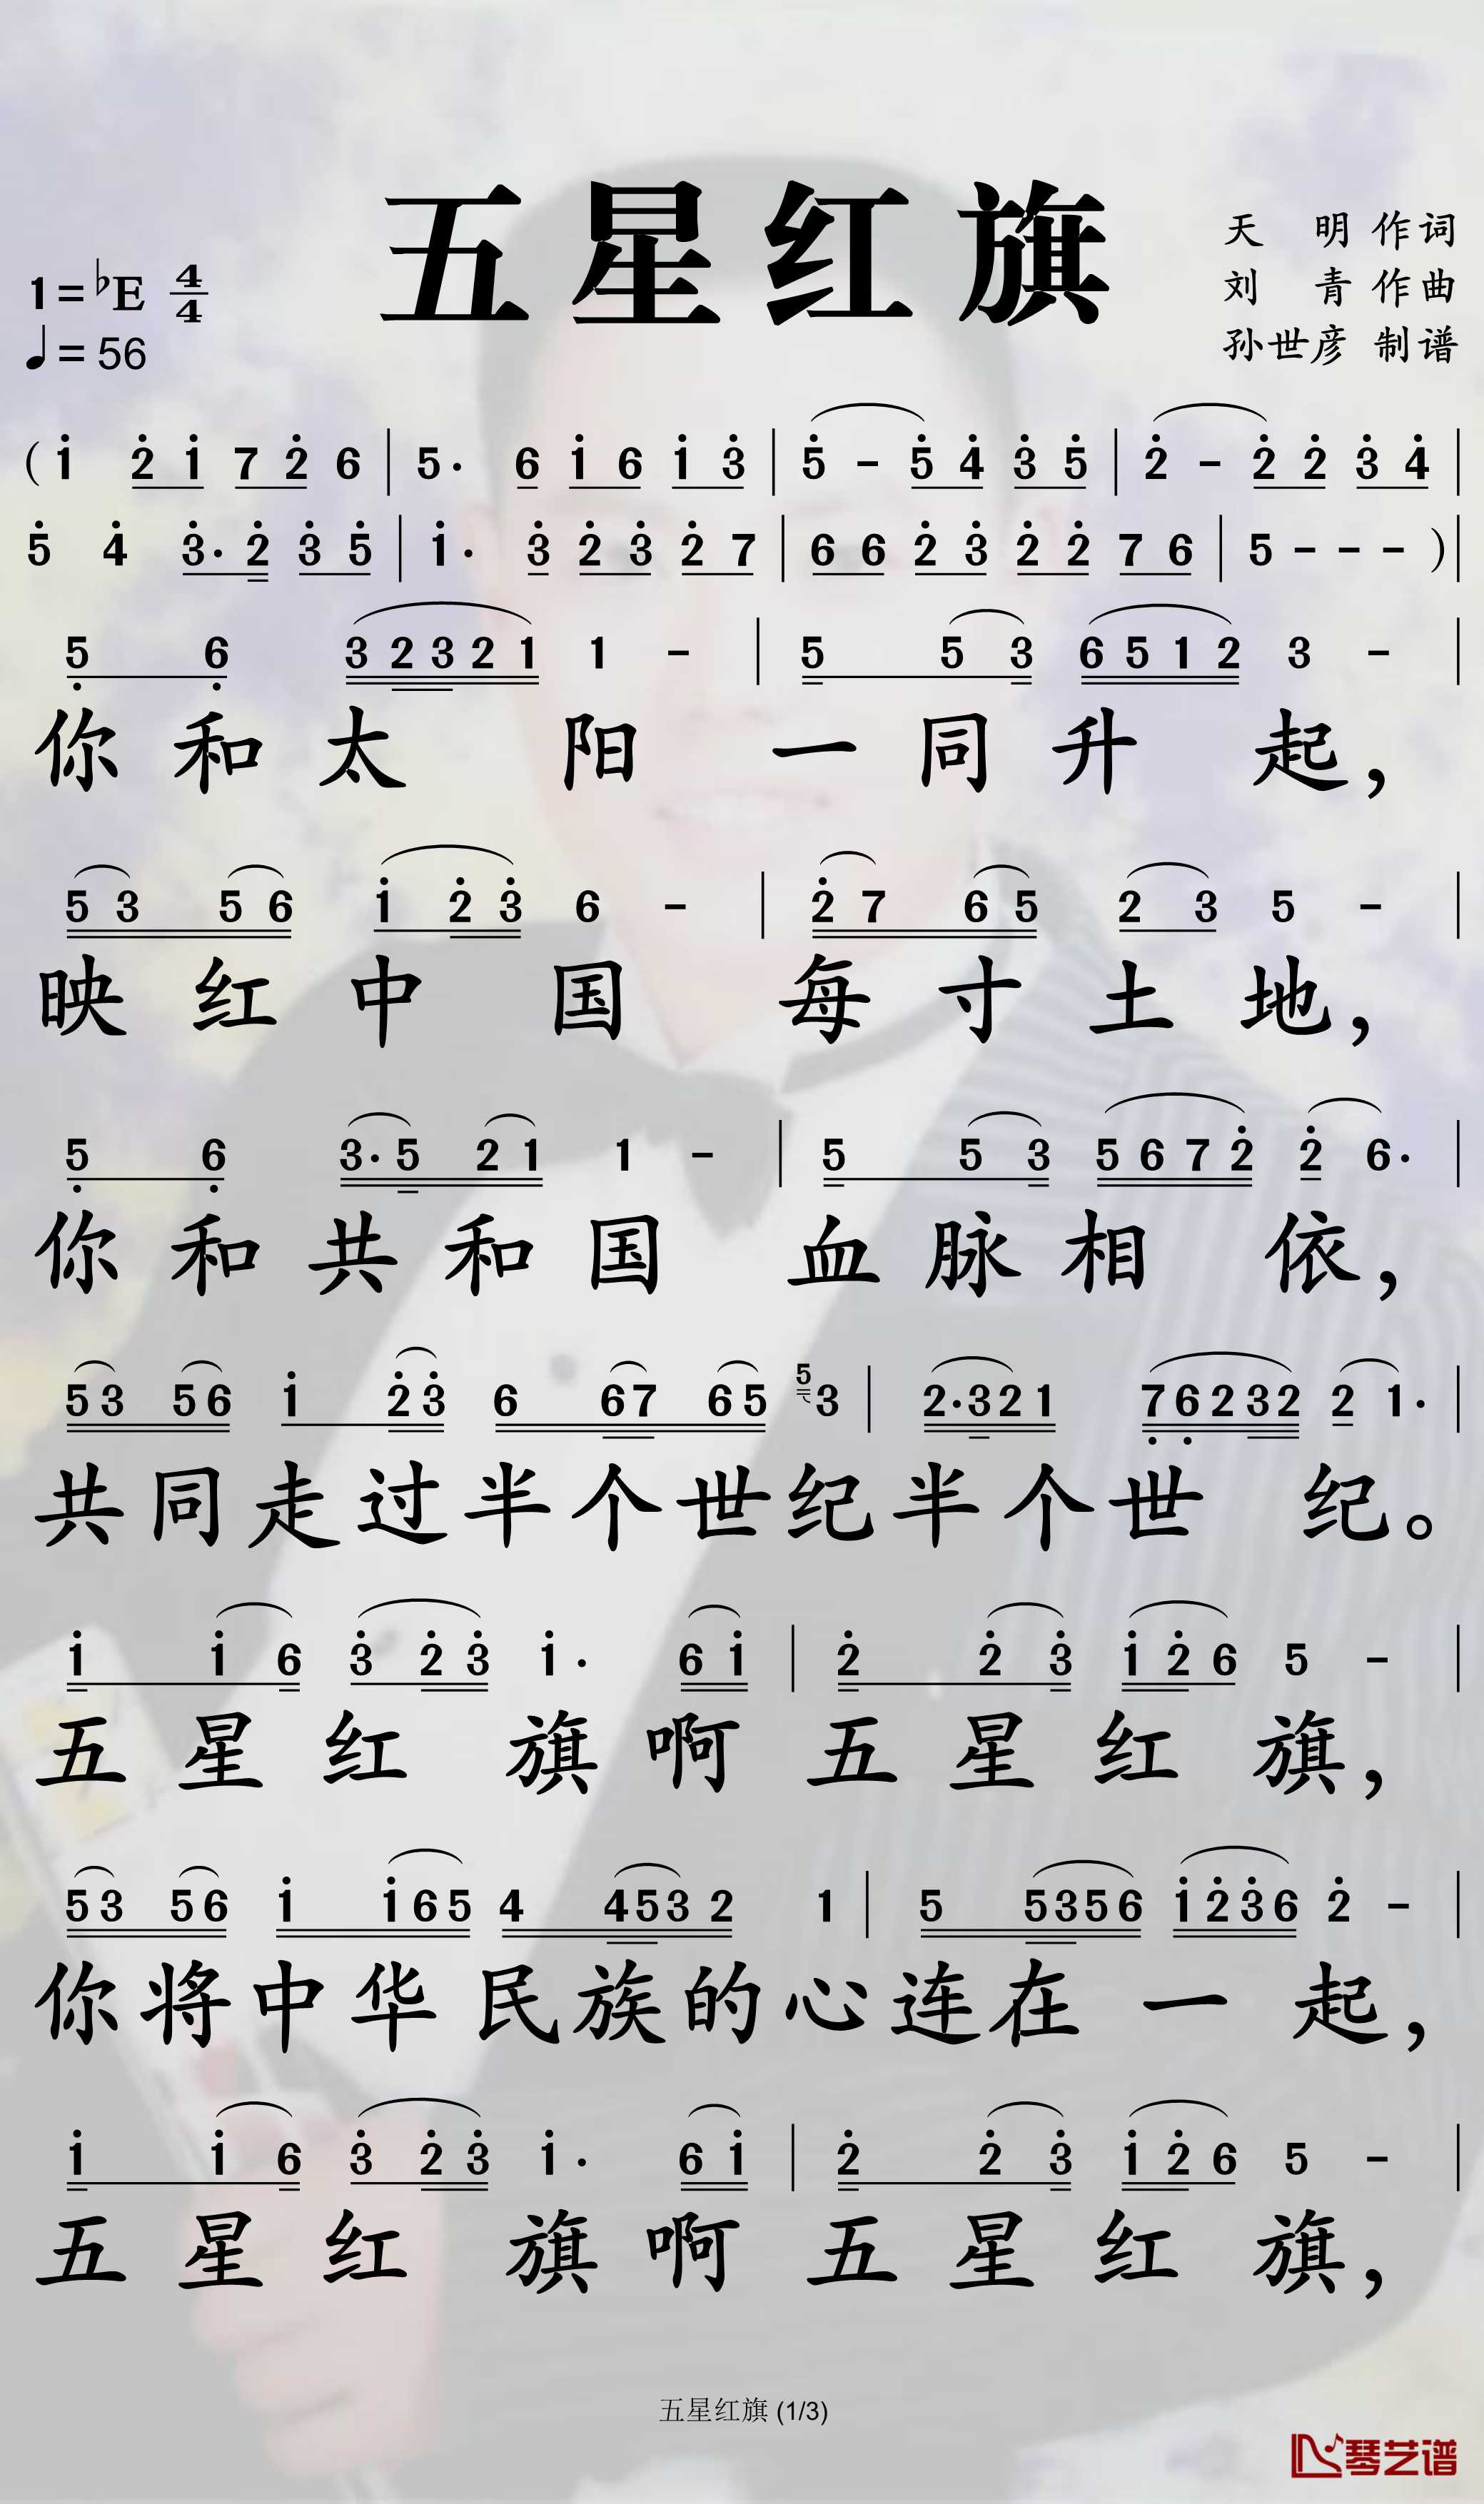 五星红旗
天 明 作词
1=♭E 4/4
刘 青 作曲
♩=56
孙世彦 制谱
( 1̇ 2̇ 1̇ 7 2̇ 6 | 5· 6 1̇ 6 1̇ 3̇ | 5̇ - 5̇ 4̇ 3̇ 5̇ | 2̇ - 2̇ 2̇ 3̇ 4̇ |
5̇ 4̇ 3̇· 2̇ 3̇ 5̇ | 1̇· 3̇ 2̇ 3̇ 2̇ 7 | 6 6 2̇ 3̇ 2̇ 2̇ 7 6 | 5 - - - ) |
5̣ 6̣ 3 2 3 2 1 1 - | 5 5 3 6 5 1 2 3 - |
你和太 阳 一同升 起，
5 3 5 6 1̇ 2̇ 3̇ 6 - | 2̇ 7 6 5 2 3 5 - |
映红中 国 每寸土地，
5̣ 6̣ 3· 5 2 1 1 - | 5 5 3 5 6 7 2̇ 2̇ 6· |
你和共和国 血脉相 依，
5 3 5 6 1̇ 2̇ 3̇ 6 6 7 6 5 5 3 | 2· 3 2 1 7̣ 6̣ 2 3 2 2 1· |
共同走过半个世纪半个世 纪。
1̇ 1̇ 6 3̇ 2̇ 3̇ 1̇· 6 1̇ | 2̇ 2̇ 3̇ 1̇ 2̇ 6 5 - |
五星红 旗啊 五星红 旗，
5 3 5 6 1̇ 1̇ 6 5 4 4 5 3 2 1 | 5 5 3 5 6 1̇ 2̇ 3̇ 6 2̇ - |
你将中华民族的心连在一 起，
1̇ 1̇ 6 3̇ 2̇ 3̇ 1̇· 6 1̇ | 2̇ 2̇ 3̇ 1̇ 2̇ 6 5 - |
五星红 旗啊 五星红 旗，
五星红旗 (1/3)
琴艺谱